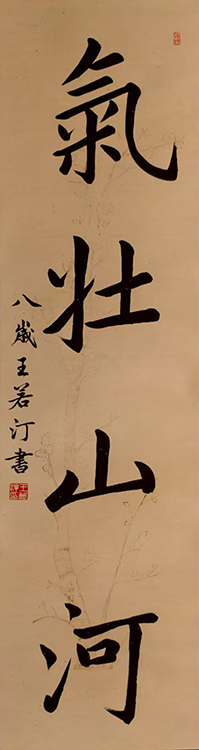 氣壯山河
八歲王若汀書